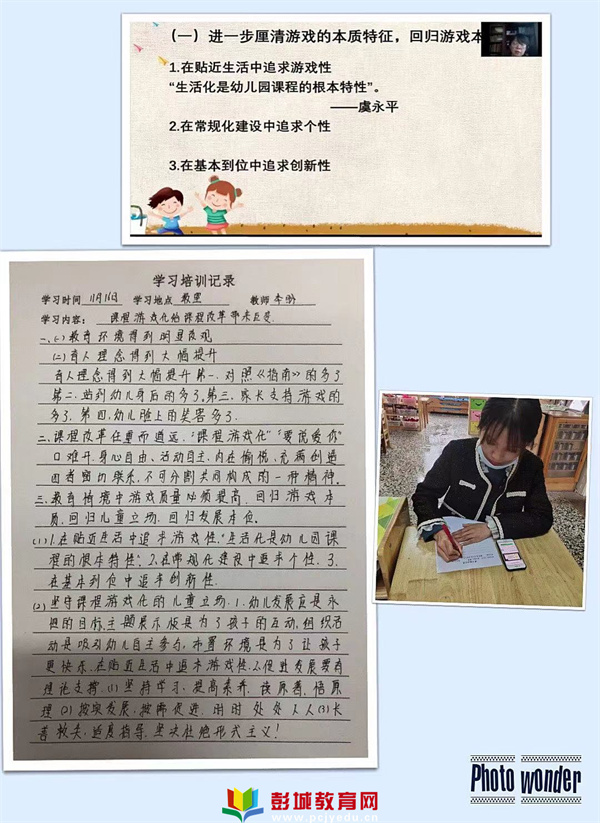 （一）进一步厘清游戏的本质特征，回归游戏本
1.在贴近生活中追求游戏性
“生活化是幼儿园课程的根本特性”。
——虞永平
2.在常规化建设中追求个性
3.在基本到位中追求创新性
学习培训记录
学习时间 11月16日 学习地点 教室 教师
学习内容： 课程游戏化的课程改革带来巨变
一、(一)教育环境得到明显改观
(二)育人理念得到大幅提升
育人理念得到大幅提升第一.对照《指南》的多了
第二.站到幼儿身后的多了.第三.家长支持游戏的
多了.第四.幼儿脸上的笑容多了.
二.课程改革任重而道远."课程游戏化""要说爱你"
口难开.身心自由、活动自主、内在愉悦、充满创造
四者密切联系.不可分割共同构成的一种精神。
三.教育情境中游戏质量必须提高.回归游戏本
质.回归儿童立场.回归发展本位。
(1)1.在贴近生活中追求游戏性."生活化是幼儿园课
程的根本特性".2.在常规化建设中追求个性.3.
在基本到位中追求创新性.
(2)坚持课程游戏化的儿童立场.1.幼儿发展应是永
恒的目标.主题展示板是为了孩子的互动,组织活
动是吸引幼儿自主参与,布置环境是为了让孩子
更快乐.在贴近生活中追求游戏性.2.促进发展要有
理论支撑.(1)坚持学习、提高素养、读原著、悟原
理(2)按需发展,推衡促进.时时处处人人(3)长
善救失,适度指导.坚决杜绝形式主义!
Photo wonder
彭城教育网
www.pcjyedu.cn